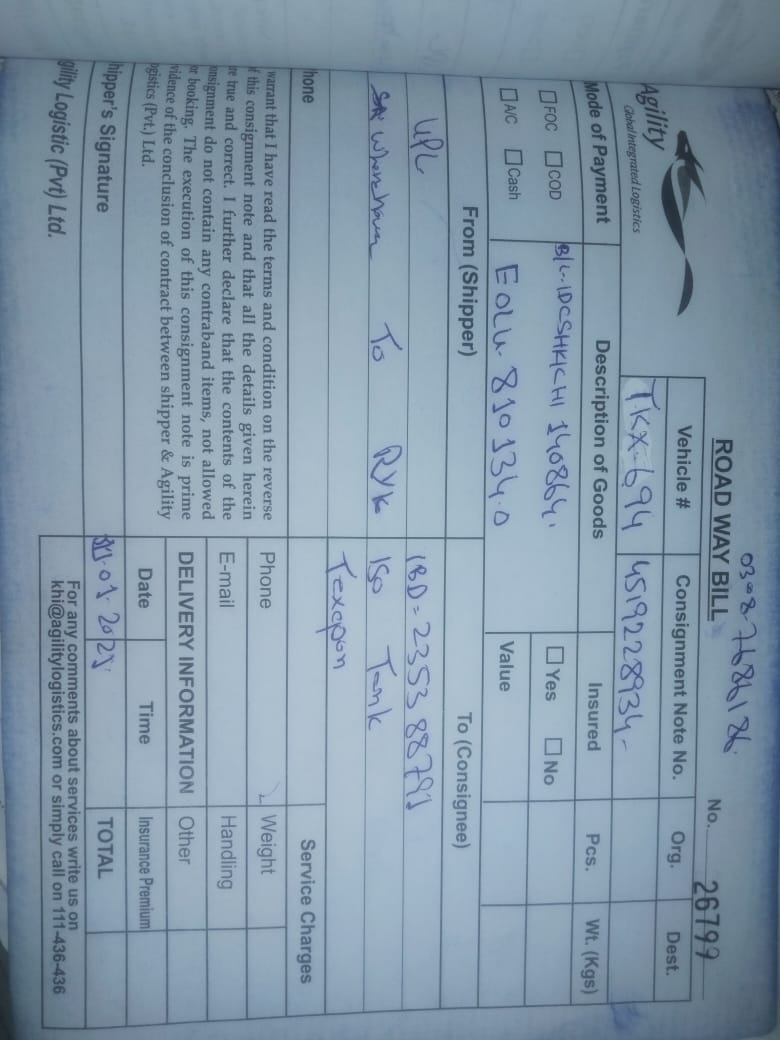 0308-7686186
ROAD WAY BILL
No. 26799
Agility
Global Integrated Logistics
Vehicle # Consignment Note No. Org. Dest.
TKX-694 4519228934-
Mode of Payment Description of Goods Insured Pcs. Wt. (Kgs)
FOC COD B/L-IDCSHKICHI 140864. Yes No
A/C Cash EOLU-810134-0 Value
From (Shipper) To (Consignee)
UPL IBD=235388791
To RYK ISO Tank
Texapon
hone Service Charges
warrant that I have read the terms and condition on the reverse
of this consignment note and that all the details given herein
re true and correct. I further declare that the contents of the
onsignment do not contain any contraband items, not allowed
or booking. The execution of this consignment note is prime
vidence of the conclusion of contract between shipper & Agility
ogistics (Pvt.) Ltd.
Phone Weight
E-mail Handling
DELIVERY INFORMATION Other
Date Time Insurance Premium
hipper's Signature 01.2025 TOTAL
gility Logistic (Pvt) Ltd.
For any comments about services write us on
khi@agilitylogistics.com or simply call on 111-436-436